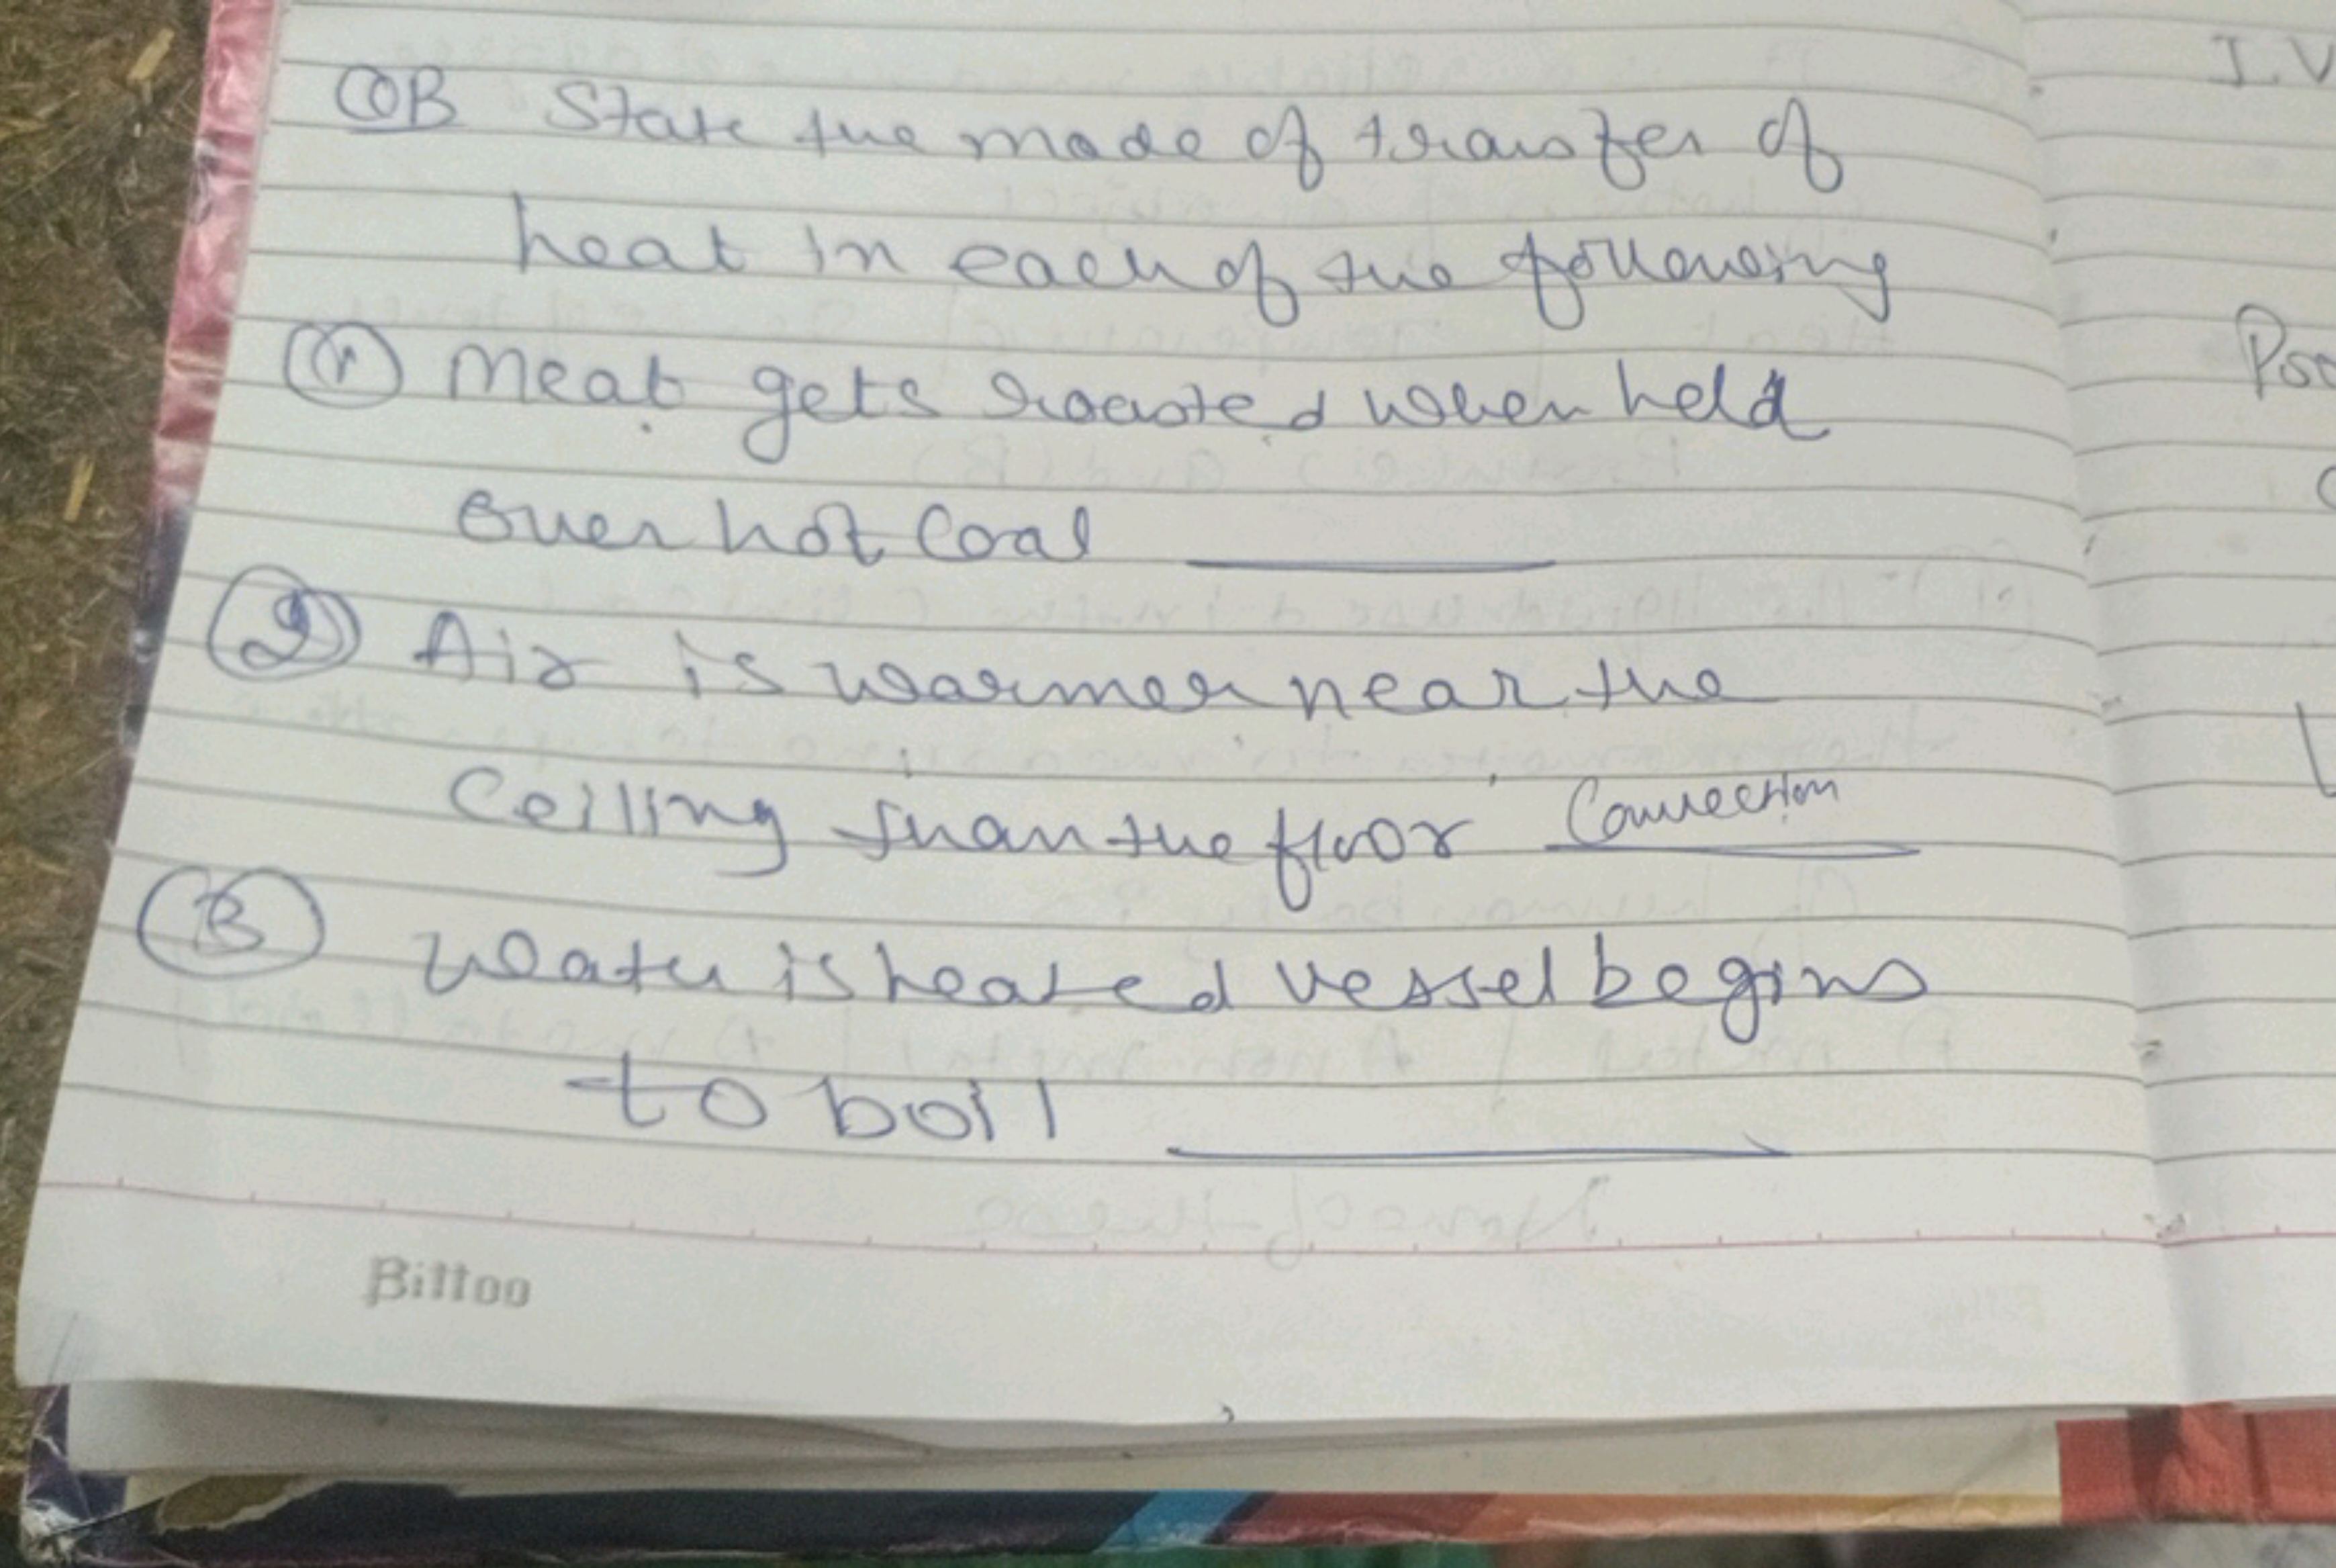 QB State the mode of transfer of
heat in each of the following
① Meat gets roasted when held
over hot coal
② Air is warmer near the
Ceiling than the floor Convection
③ Water is heated vessel begins
to boil
Bittoo
I.V